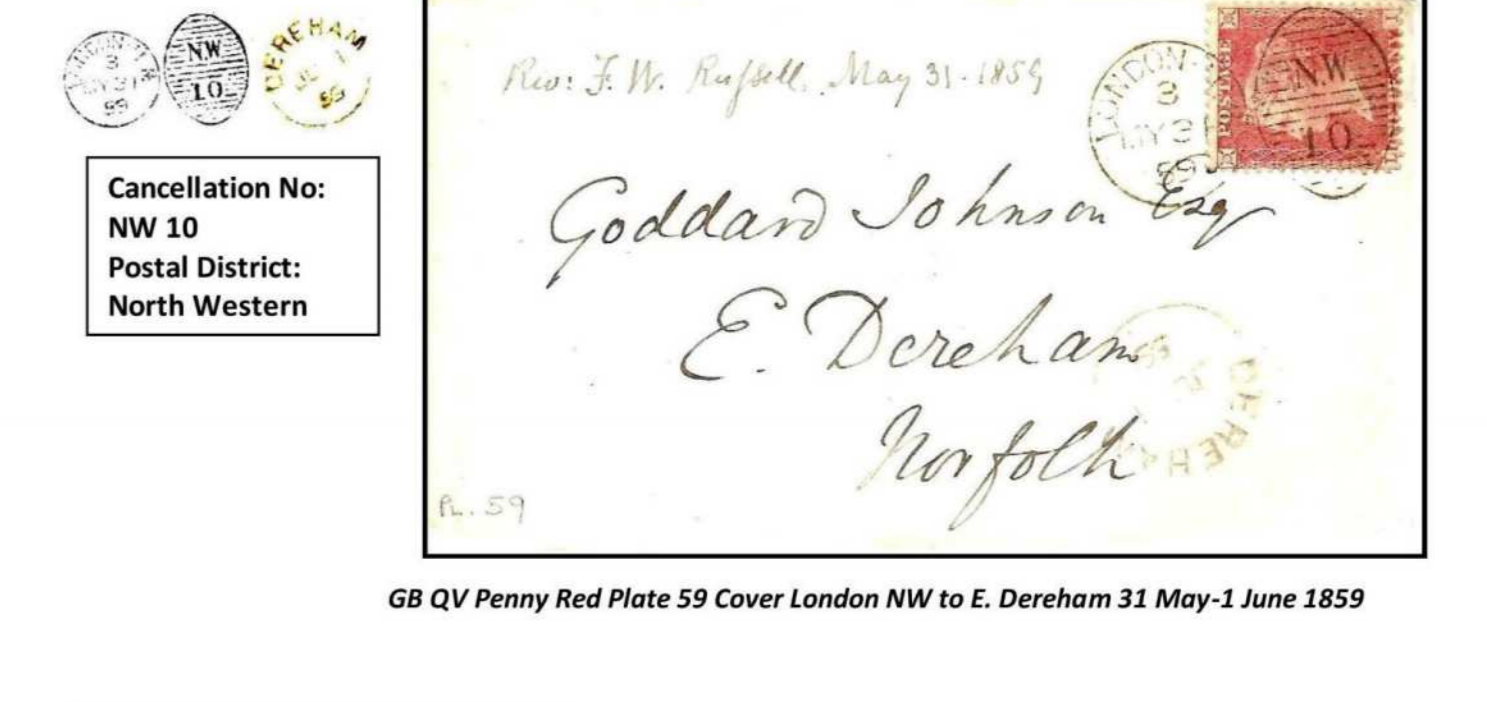 LONDON-N.W
3
MY 31
59
NW
10
DEREHAM
59
Cancellation No:
NW 10
Postal District:
North Western
Rev: F. W. Rufsell. May 31-1859
LONDON-
3
MY 3
59
POSTAGE
N.W
10
Goddard Johnson Esq
E. Dereham
Norfolk
DEREHAM
PL. 59
GB QV Penny Red Plate 59 Cover London NW to E. Dereham 31 May-1 June 1859